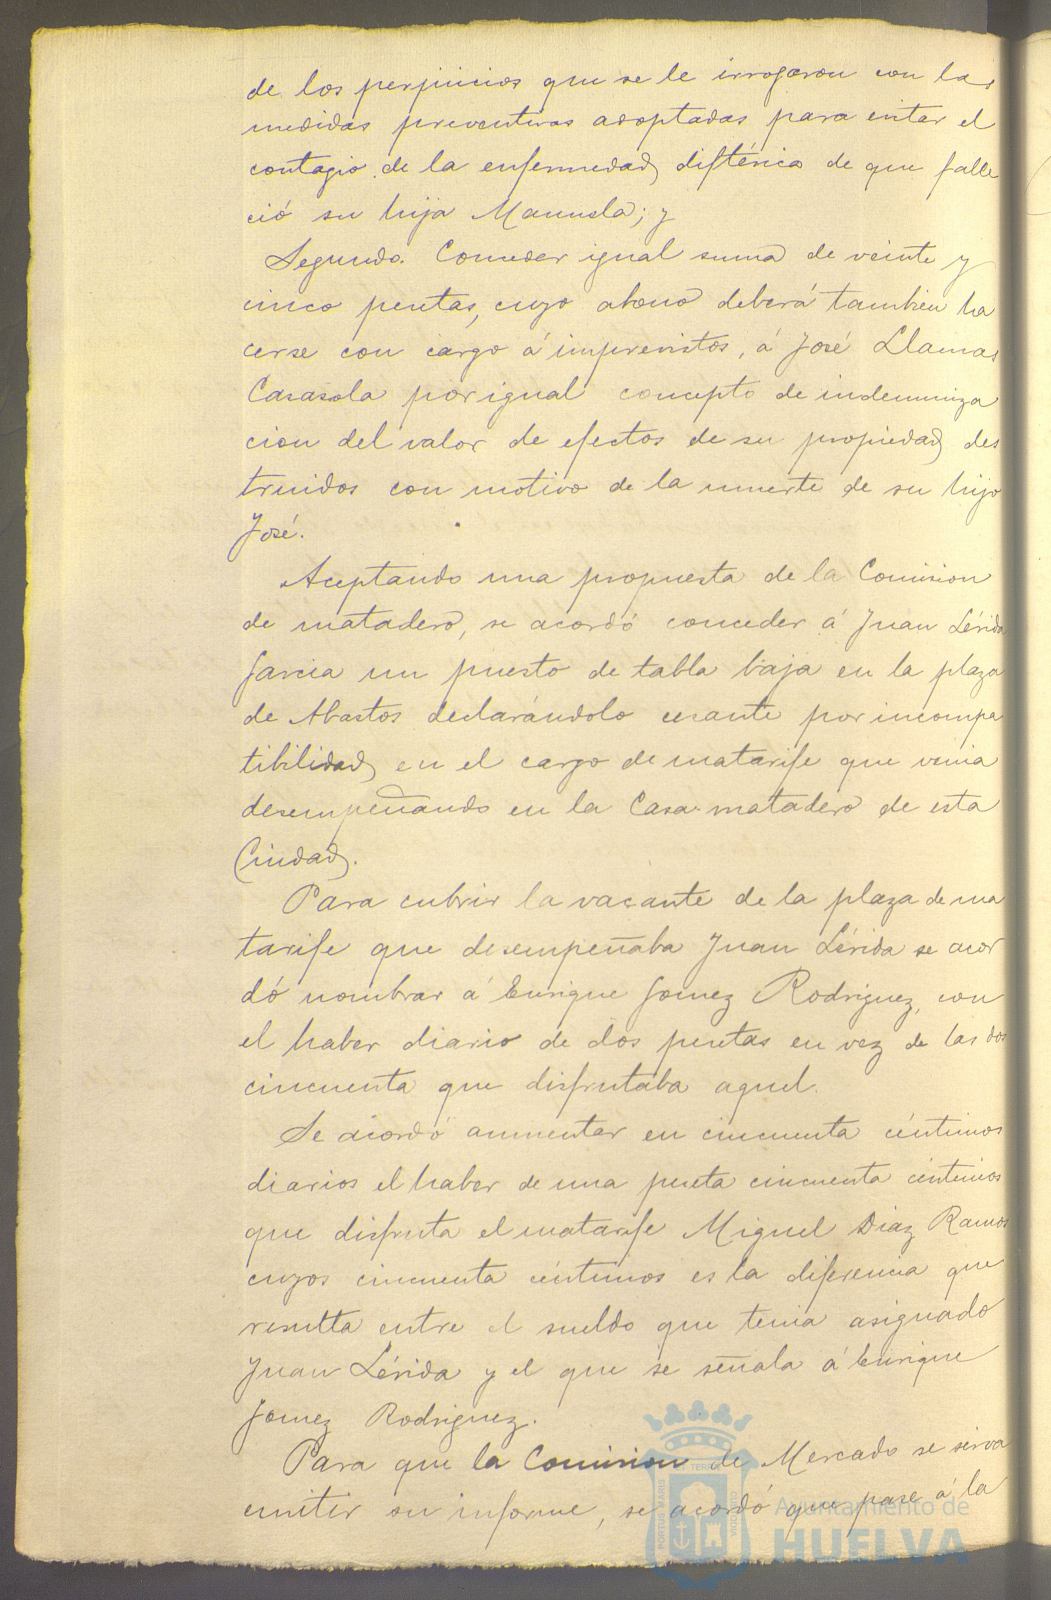 de los perjuicios que se le irrogaron con las
medidas preventivas adoptadas para evitar el
contagio de la enfermedad diftérica de que falle
ció su hija Manuela; y
Segundo. Conceder igual suma de veinte y
cinco pesetas, cuyo abono deberá tambien ha
cerse con cargo á imprevistos, á José Llamas
Casasola por igual concepto de indemniza
cion del valor de efectos de su propiedad des
truidos con motivo de la muerte de su hijo
José.
Aceptando una propuesta de la Comision
de matadero, se acordó conceder á Juan Lérida
Garcia un puesto de tabla baja en la plaza
de Abastos declarándolo cesante por incompa
tibilidad en el cargo de matarife que venia
desempeñando en la Casa-matadero de esta
Ciudad.
Para cubrir la vacante de la plaza de ma
tarife que desempeñaba Juan Lérida se acor
dó nombrar á Enrique Gomez Rodriguez, con
el haber diario de dos pesetas en vez de las dos
cincuenta que disfrutaba aquel.
Se acordó aumentar en cincuenta céntimos
diarios el haber de una peseta cincuenta céntimos
que disfruta el matarife Miguel Diaz Ramos
cuyos cincuenta céntimos es la diferencia que
resulta entre el sueldo que tenia asignado
Juan Lérida y el que se señala á Enrique
Gomez Rodriguez.
Para que la Comision de Mercado se sirva
emitir su informe, se acordó que pase á la
Ayuntamiento de
HUELVA